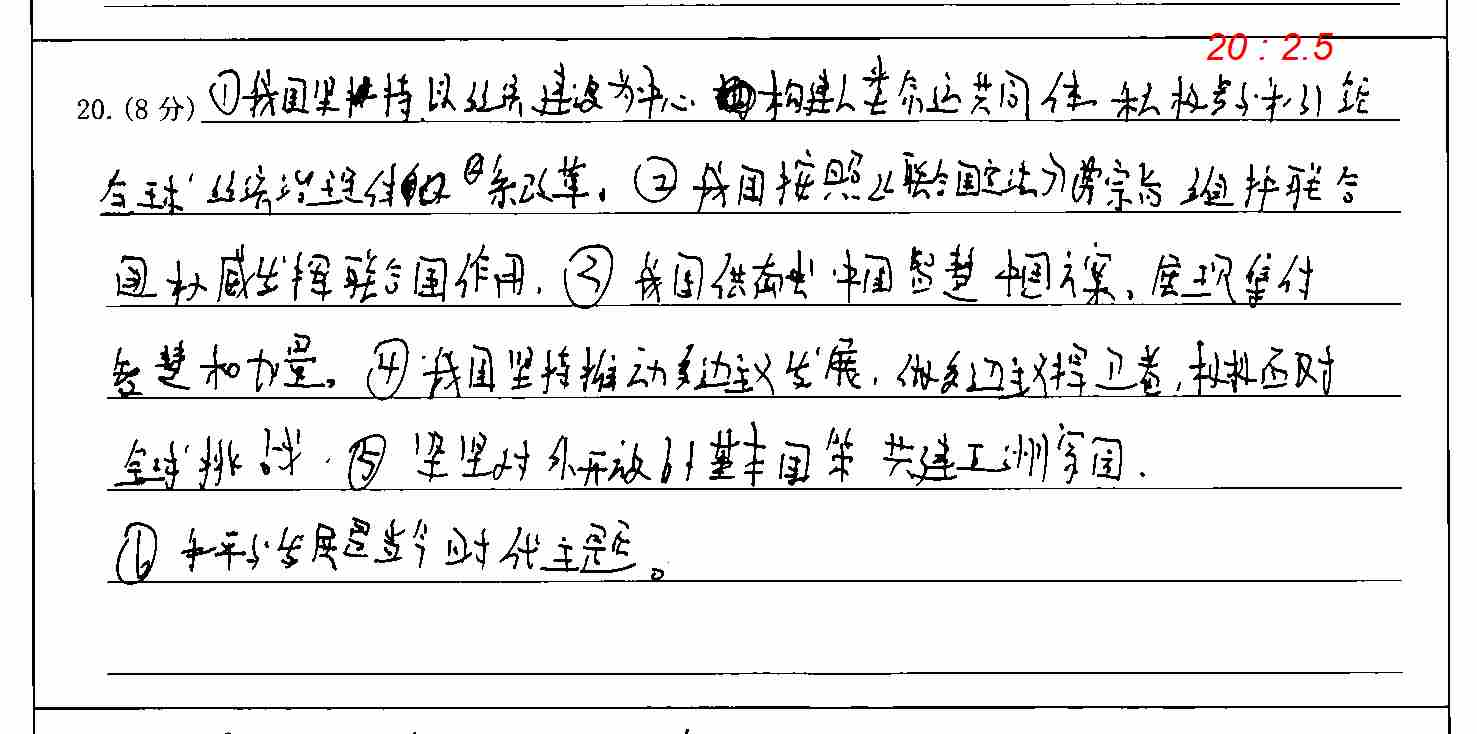 20 : 2.5
20. (8 分) ①我国坚持以经济建设为中心 构建人类命运共同体 积极参与和引领
全球经济治理体系改革。②我国按照以联合国宪法宗旨 维护联合
国权威发挥联合国作用. ③我国供献出中国智慧中国方案、展现集体
智慧和力量。④我国坚持推动多边主义发展,做多边主义捍卫者,积极应对
全球挑战. ⑤坚坚对外开放的基本国策 共建亚洲家园.
⑥和平与发展是当今时代主题。